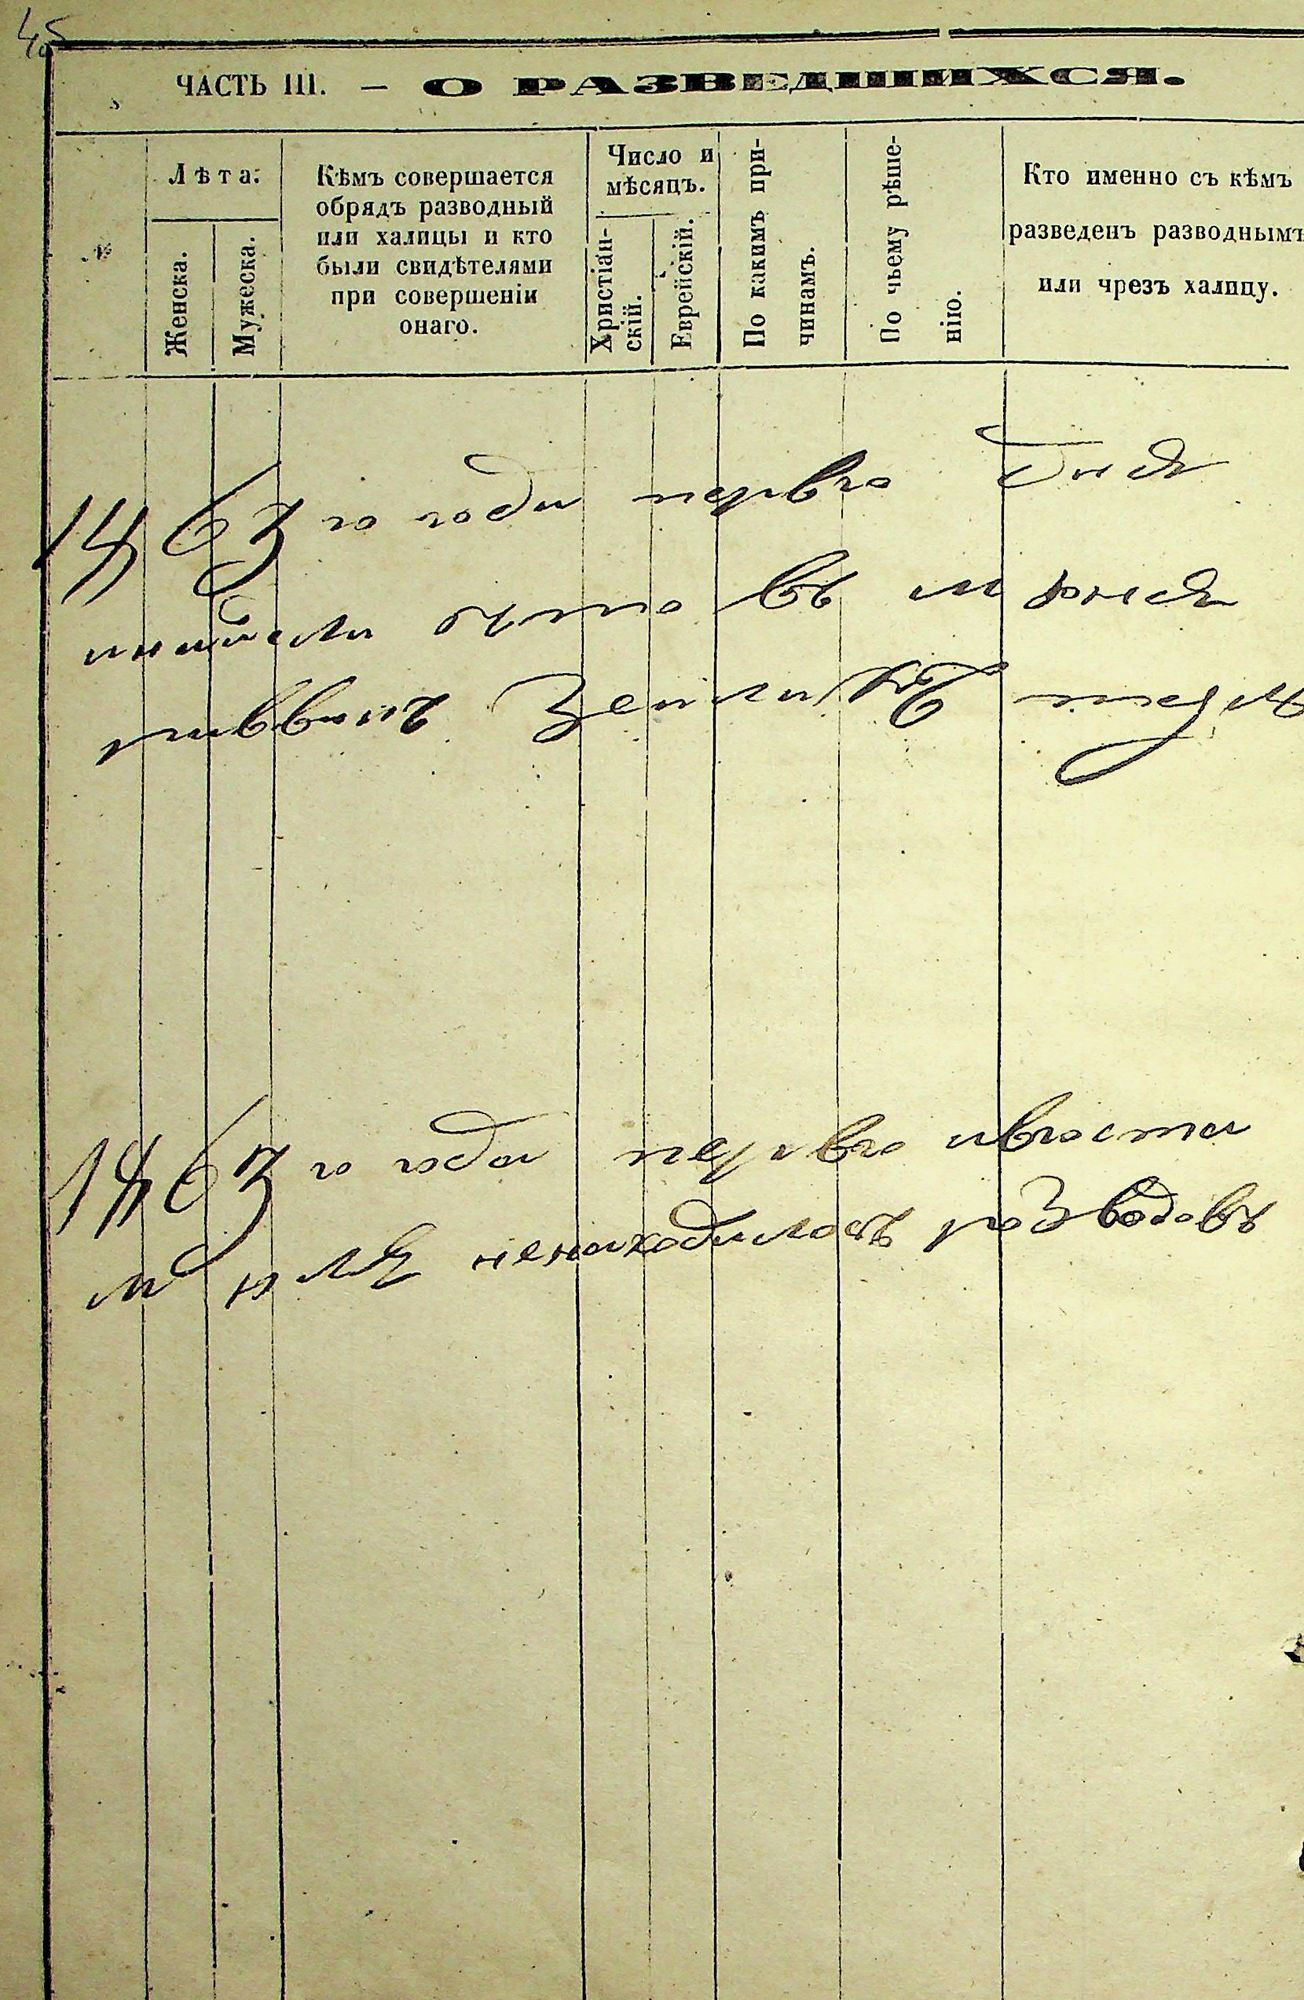 45
ЧАСТЬ III. — О РАЗВЕДШИХСЯ.
№
Лѣта:
Женска.
Мужеска.
Кѣмъ совершается
обрядъ разводный
или халицы и кто
были свидѣтелями
при совершеніи
онаго.
Число и
мѣсяцъ.
Христіан-
скій.
Еврейскій.
По какимъ при-
чинамъ.
По чьему рѣше-
нію.
Кто именно съ кѣмъ
разведенъ разводнымъ
или чрезъ халицу.
1863 го года перваго дня
что въ
раввинъ
1863 го года перваго августа
ненаходилось розводовъ